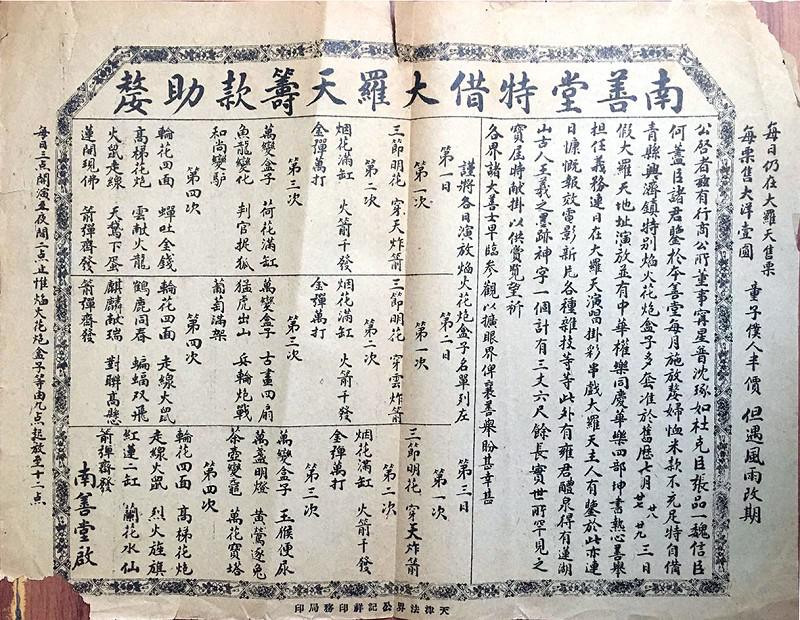 南善堂特借大羅天籌款助嫠
每日仍在大羅天售票　童子僕人半價　但遇風雨改期
每票售大洋壹圓
公啓者茲有行商公所董事甯星普沈琢如杜克臣張品一魏信臣
何藎臣諸君鑒於本善堂每月施放嫠婦恤米款不充足特自備
青縣興濟鎮特別焰火花炮盒子多套准於舊曆七月廿七廿八廿九三日
假大羅天地址演放並有中華權樂同慶華樂四部坤書熱心善舉
担任義務連日在大羅天演唱掛彩串戲大羅天主人有鑒於此亦連
日慷慨報效電影新片各種雜技等等此外有雍君醴泉得有蓬湖
山古人王羲之墨跡神字一個計有三丈六尺餘長實世所罕見之
寶屆時献掛以供賞覽望祈
各界諸大善士早臨參觀以擴眼界俾襄善舉盼甚幸甚
謹將各日演放焰火花炮盒子名單列左
第一日
第一次
三節明花　穿天炸箭
第二次
烟花滿缸　火箭千發
金彈萬打
第三次
萬變盒子　荷花滿缸
魚龍變化　判官捉狐
和尚變驴
第四次
輪花四面　蟬吐金錢
高梯花炮　雲献火龍
火鼠走線　天鵞下蛋
蓮開現佛　箭彈齊發
第二日
第一次
三節明花　穿雲炸箭
第二次
烟花滿缸　火箭千發
金彈萬打
第三次
萬變盒子　古畫四扇
猛虎出山　兵輪炮戰
葡萄滿架
第四次
輪花四面　走線火鼠
鶴鹿同春　蝙蝠双飛
麒麟献瑞　對聯高懸
箭彈齊發
第三日
第一次
三節明花　穿天炸箭
第二次
烟花滿缸　火箭千發
金彈萬打
第三次
萬變盒子　玉猴便尿
萬盞明燈　黃鶯逐兔
茶壺變龜　萬花寶塔
第四次
輪花四面　高梯花炮
走線火鼠　烈火旋旗
紅蓮二缸　蘭花水仙
箭彈齊發
南善堂啟
每日三点開演至夜間二点止惟焰火花炮盒子等由九点起放至十二点
天津法界公記祥印務局印